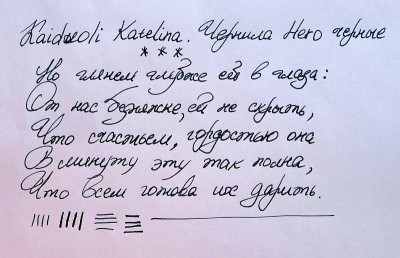 Kaidweoli Katelina. Чернила Hero черные
* * *
Но глянем глубже ей в глаза:
От нас бедняжке, ей не скрыть,
Что счастьем, гордостью она
В минуту эту так полна,
Что всем готова их дарить.